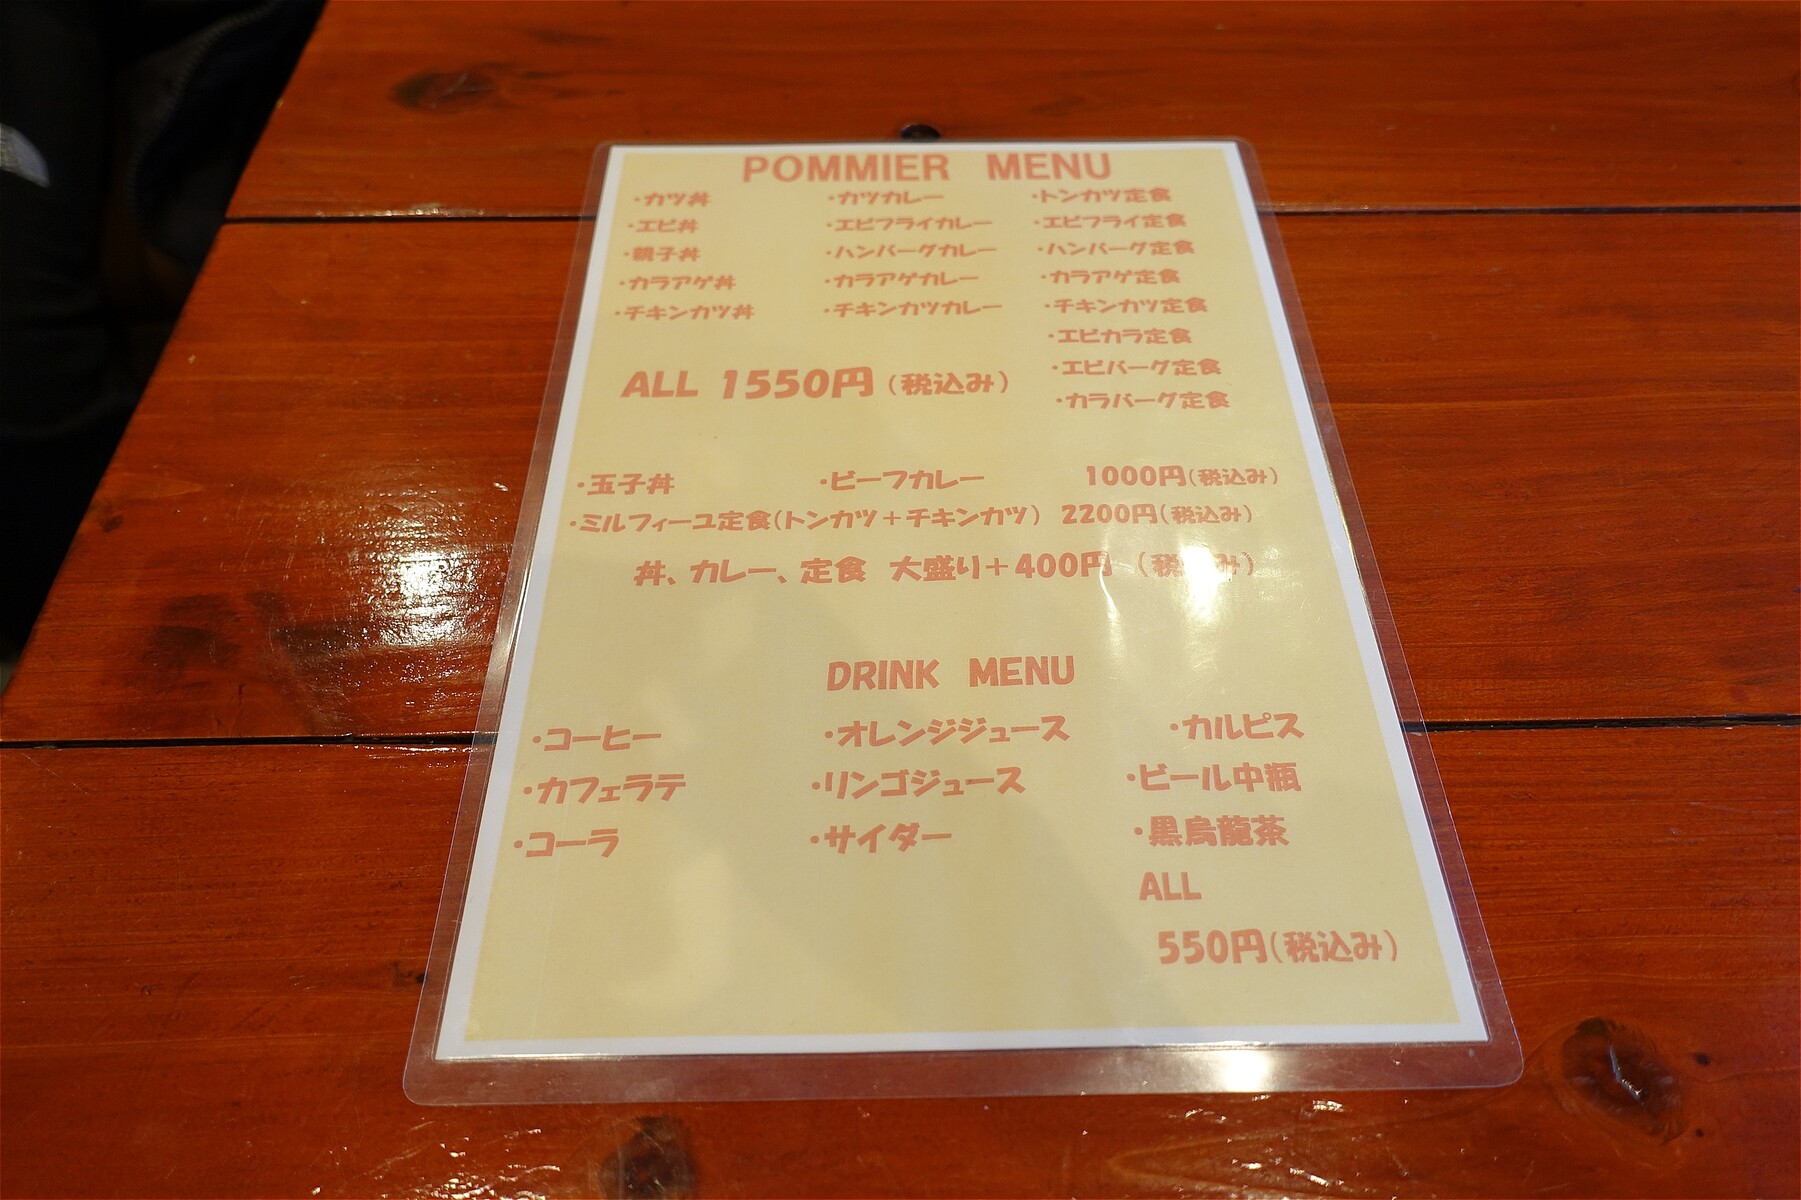 POMMIER MENU
・カツ丼 ・カツカレー ・トンカツ定食
・エビ丼 ・エビフライカレー ・エビフライ定食
・親子丼 ・ハンバーグカレー ・ハンバーグ定食
・カラアゲ丼 ・カラアゲカレー ・カラアゲ定食
・チキンカツ丼 ・チキンカツカレー ・チキンカツ定食
・エビカラ定食
・エビバーグ定食
ALL 1550円(税込み)
・カラバーグ定食
・玉子丼 ・ビーフカレー 1000円(税込み)
・ミルフィーユ定食(トンカツ+チキンカツ) 2200円(税込み)
丼、カレー、定食 大盛り+400円 (税込み)
DRINK MENU
・コーヒー ・オレンジジュース ・カルピス
・カフェラテ ・リンゴジュース ・ビール中瓶
・コーラ ・サイダー ・黒烏龍茶
ALL
550円(税込み)